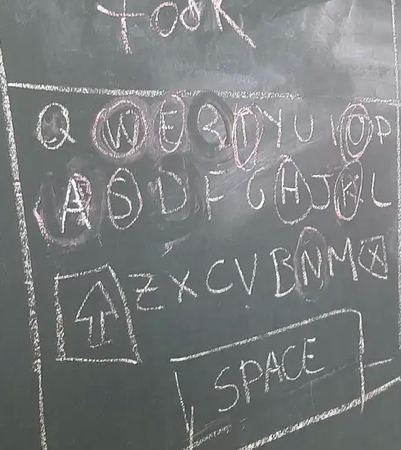 took
Q W E R T Y U I O P
A S D F G H J K L
Z X C V B N M X
SPACE